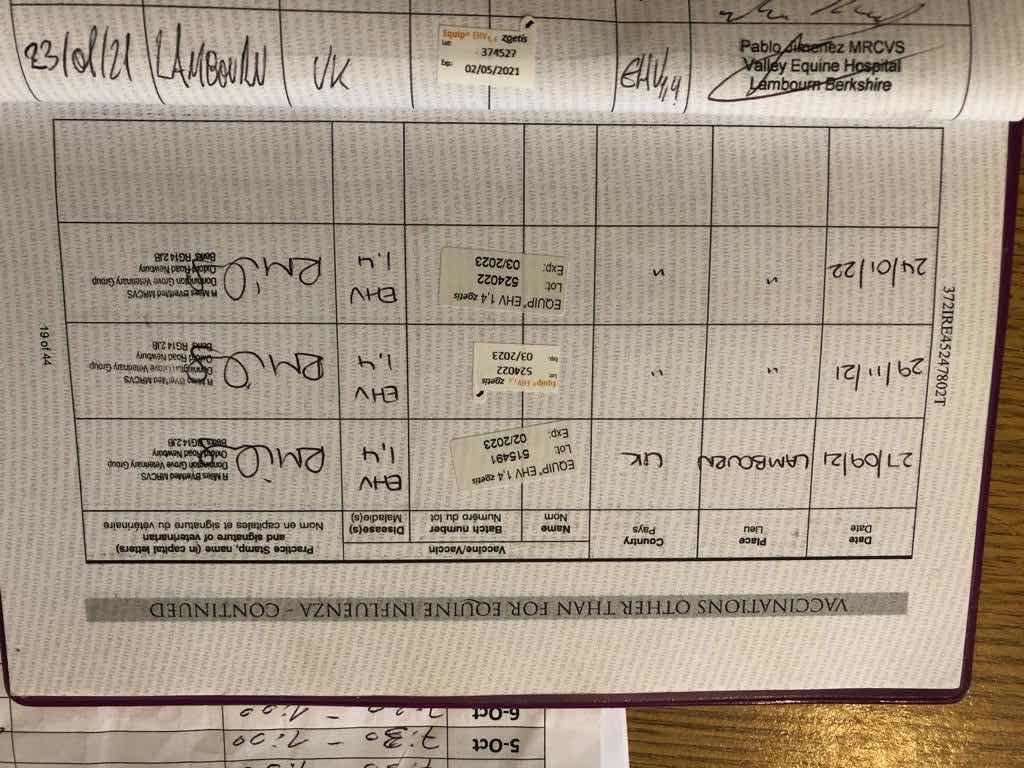 23/01/21 LAMBOURN UK
Equip® EHV1,4 zoetis
Lot: 374527
Exp: 02/05/2021
EHV1,4
Pablo Jimenez MRCVS
Valley Equine Hospital
Lambourn Berkshire
VACCINATIONS OTHER THAN FOR EQUINE INFLUENZA - CONTINUED
372IRE45247802T
Date
Date
Place
Lieu
Country
Pays
Vaccine/Vaccin
Name
Nom
Batch number
Numéro du lot
Disease(s)
Maladie(s)
Practice Stamp, name (in capital letters)
and signature of veterinarian
Nom en capitales et signature du vétérinaire
27/09/21 LAMBOURN UK
EQUIP® EHV 1,4 zoetis
Lot: 515491
Exp: 02/2023
EHV
1,4
Donnington Grove Veterinary Group
Oxford Road Newbury
Berks RG14 2JB
29/11/21 " "
Equip® EHV1,4 zoetis
Lot: 524022
Exp: 03/2023
EHV
1,4
Donnington Grove Veterinary Group
Oxford Road Newbury
Berks RG14 2JB
24/01/22 " "
EQUIP® EHV 1,4 zoetis
Lot: 524022
Exp: 03/2023
EHV
1,4
Donnington Grove Veterinary Group
Oxford Road Newbury
Berks RG14 2JB
19 of 44
6-Oct
5-Oct 7:30 - 1:00